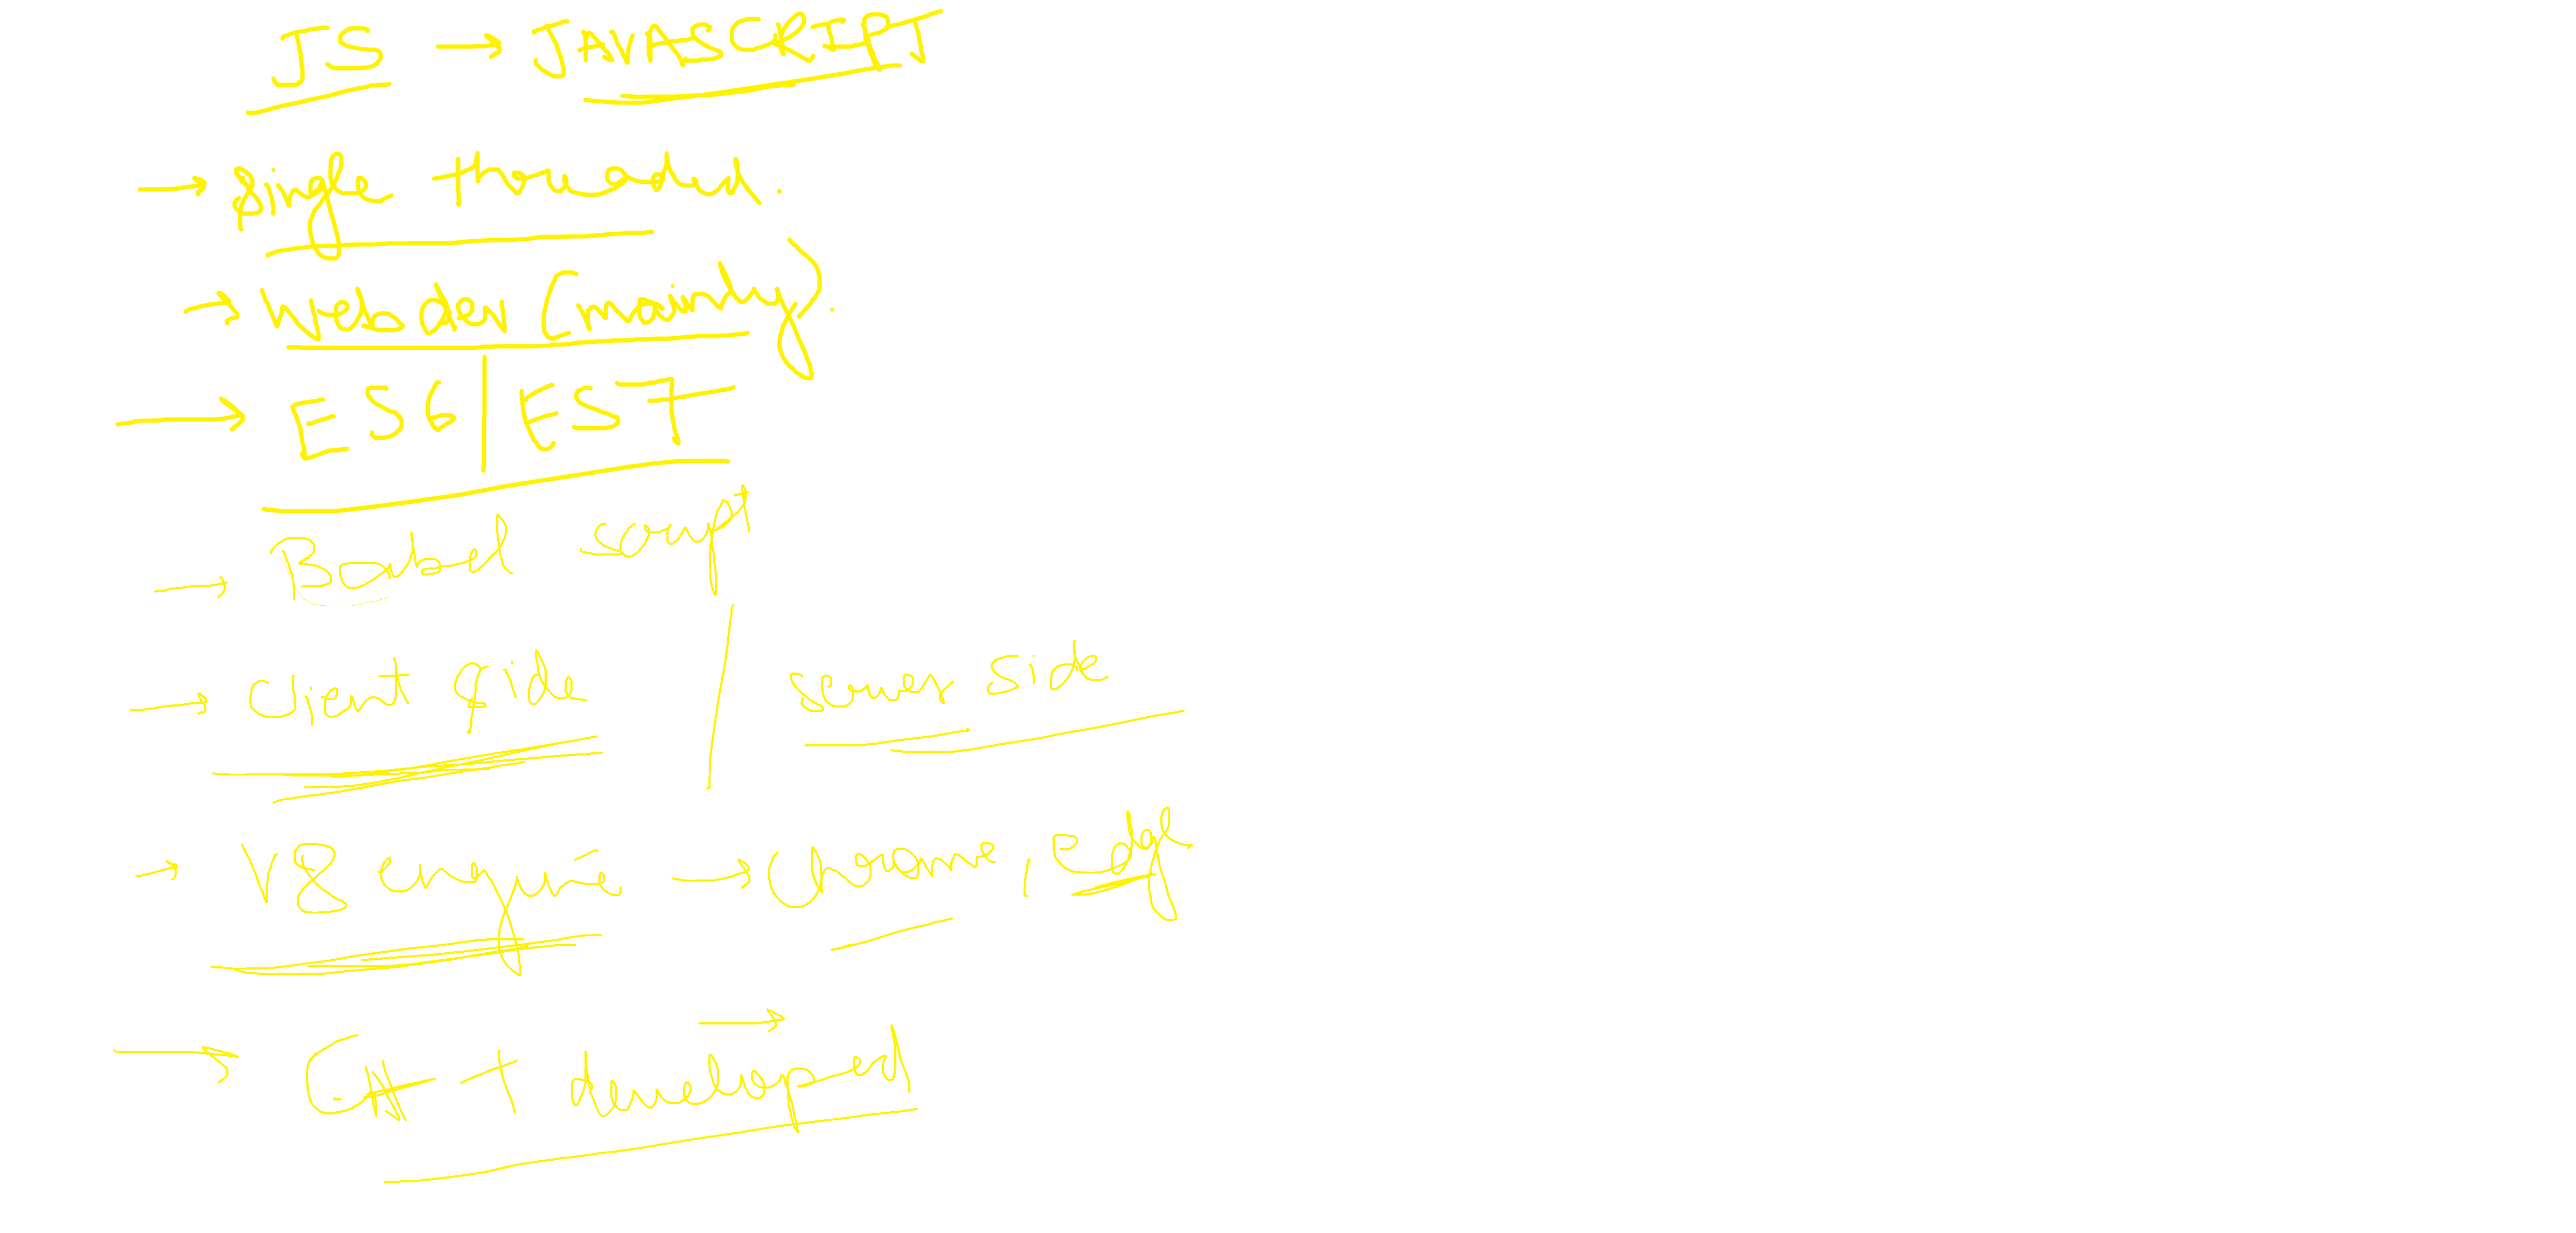 JS → JAVASCRIPT
→ single threaded.
→ Web dev (mainly).
→ ES6 | ES7
→ Babel script
→ Client side | server side
→ V8 engine → Chrome, Edge
→ C++ developed →